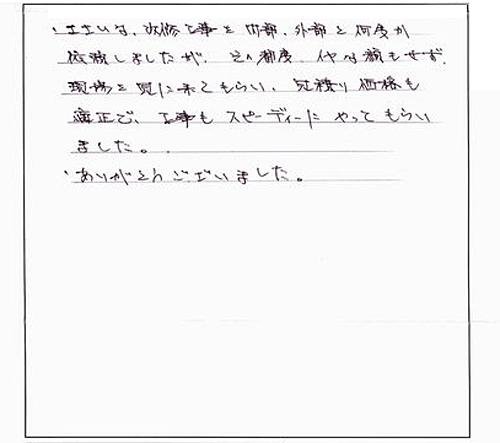 ・ささいな、改修工事を内部、外部と何度か
依頼しましたが、その都度、イヤな顔もせず、
現場を見に来てもらい、見積り価格も
適正で、工事もスピーディーにやってもらい
ました。
・ありがとうございました。